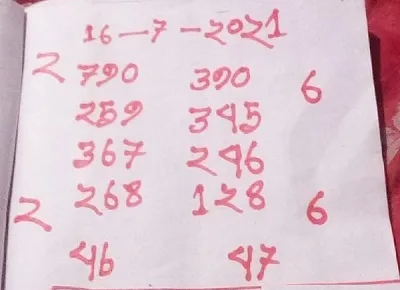 16-7-2021
2 790 390 6
259 345
367 246
2 268 128 6
46 47